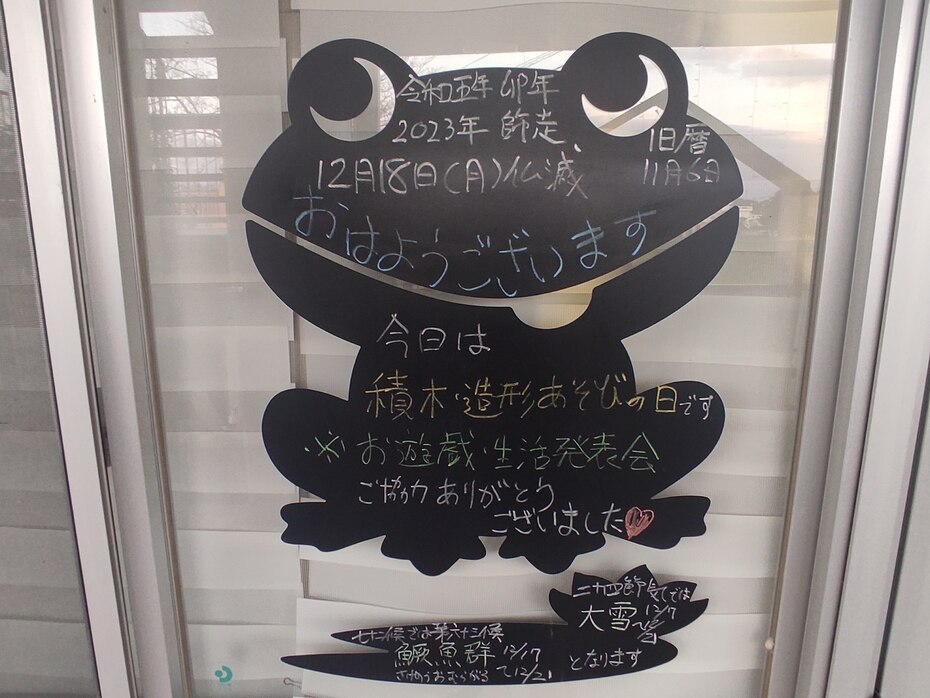 令和五年 卯年
2023年 師走
旧暦
12月18日(月)仏滅
11月6日
おはようございます
今日は
積木・造形あそびの日です
※お遊戯・生活発表会
ご協力ありがとう
ございました
二十四節気では
大雪 12/7
七十二候では第六十三候
鱖魚群 12/17
さけのうおむらがる ~12/21
となります